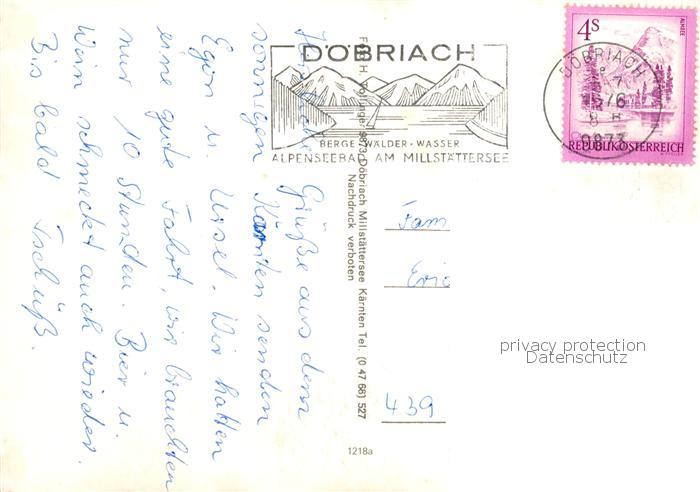 Herzliche Grüße aus dem
sonnigen Kärnten senden
Egon u. Ursel. Wir hatten
eine gute Fahrt, wir brauchten
nur 10 Stunden. Bier u.
Wein schmeckt auch wieder.
Bis bald Tschüß.
DÖBRIACH
BERGE · WÄLDER · WASSER
ALPENSEEBAD AM MILLSTÄTTERSEE
DÖBRIACH
9873
4S
ALMSEE
REPUBLIK ÖSTERREICH
9873 Döbriach Millstättersee Kärnten Tel. (0 47 66) 527
Nachdruck verboten
Fam
439
1218a
privacy protection
Datenschutz